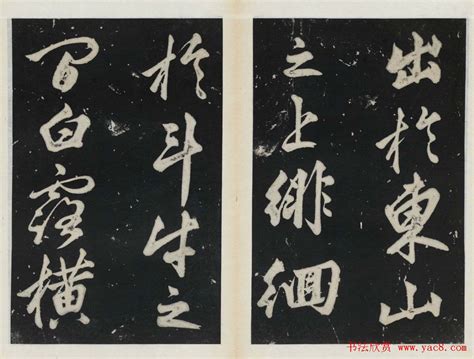 出於東山
之上徘徊
於斗牛之
間白露橫
书法欣赏 www.yac8.com